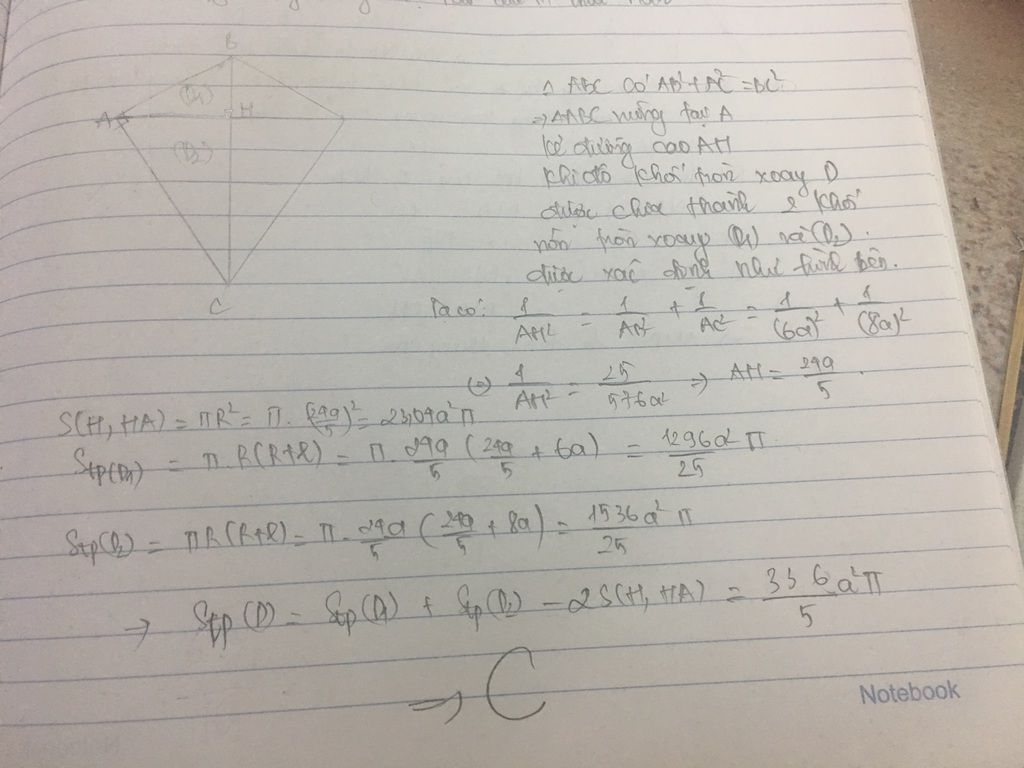 B
(D₁)
A
H
(D₂)
C
Δ ABC có AB² + AC² = BC²
⇒ ΔABC vuông tại A
Kẻ đường cao AH
Khi đó khối tròn xoay D
được chia thành 2 khối
nón tròn xoay (D₁) và (D₂).
được xác định như hình bên.
Ta có: 1/AH² = 1/AB² + 1/AC² = 1/(6a)² + 1/(8a)²
(=) 1/AH² = 25/576a² ⇒ AH = 24a/5.
S(H, HA) = πR² = π.(24a/5)² = 23,04a²π
Stp(D₁) = π.R(R+l) = π.24a/5 (24a/5 + 6a) = 1296a²/25 π
Stp(D₂) = πR(R+l) = π.24a/5 (24a/5 + 8a) = 1536a²/25 π
⇒ Stp(D) = Stp(D₁) + Stp(D₂) − 2S(H, HA) = 336/5 a²π
⇒ C
Notebook